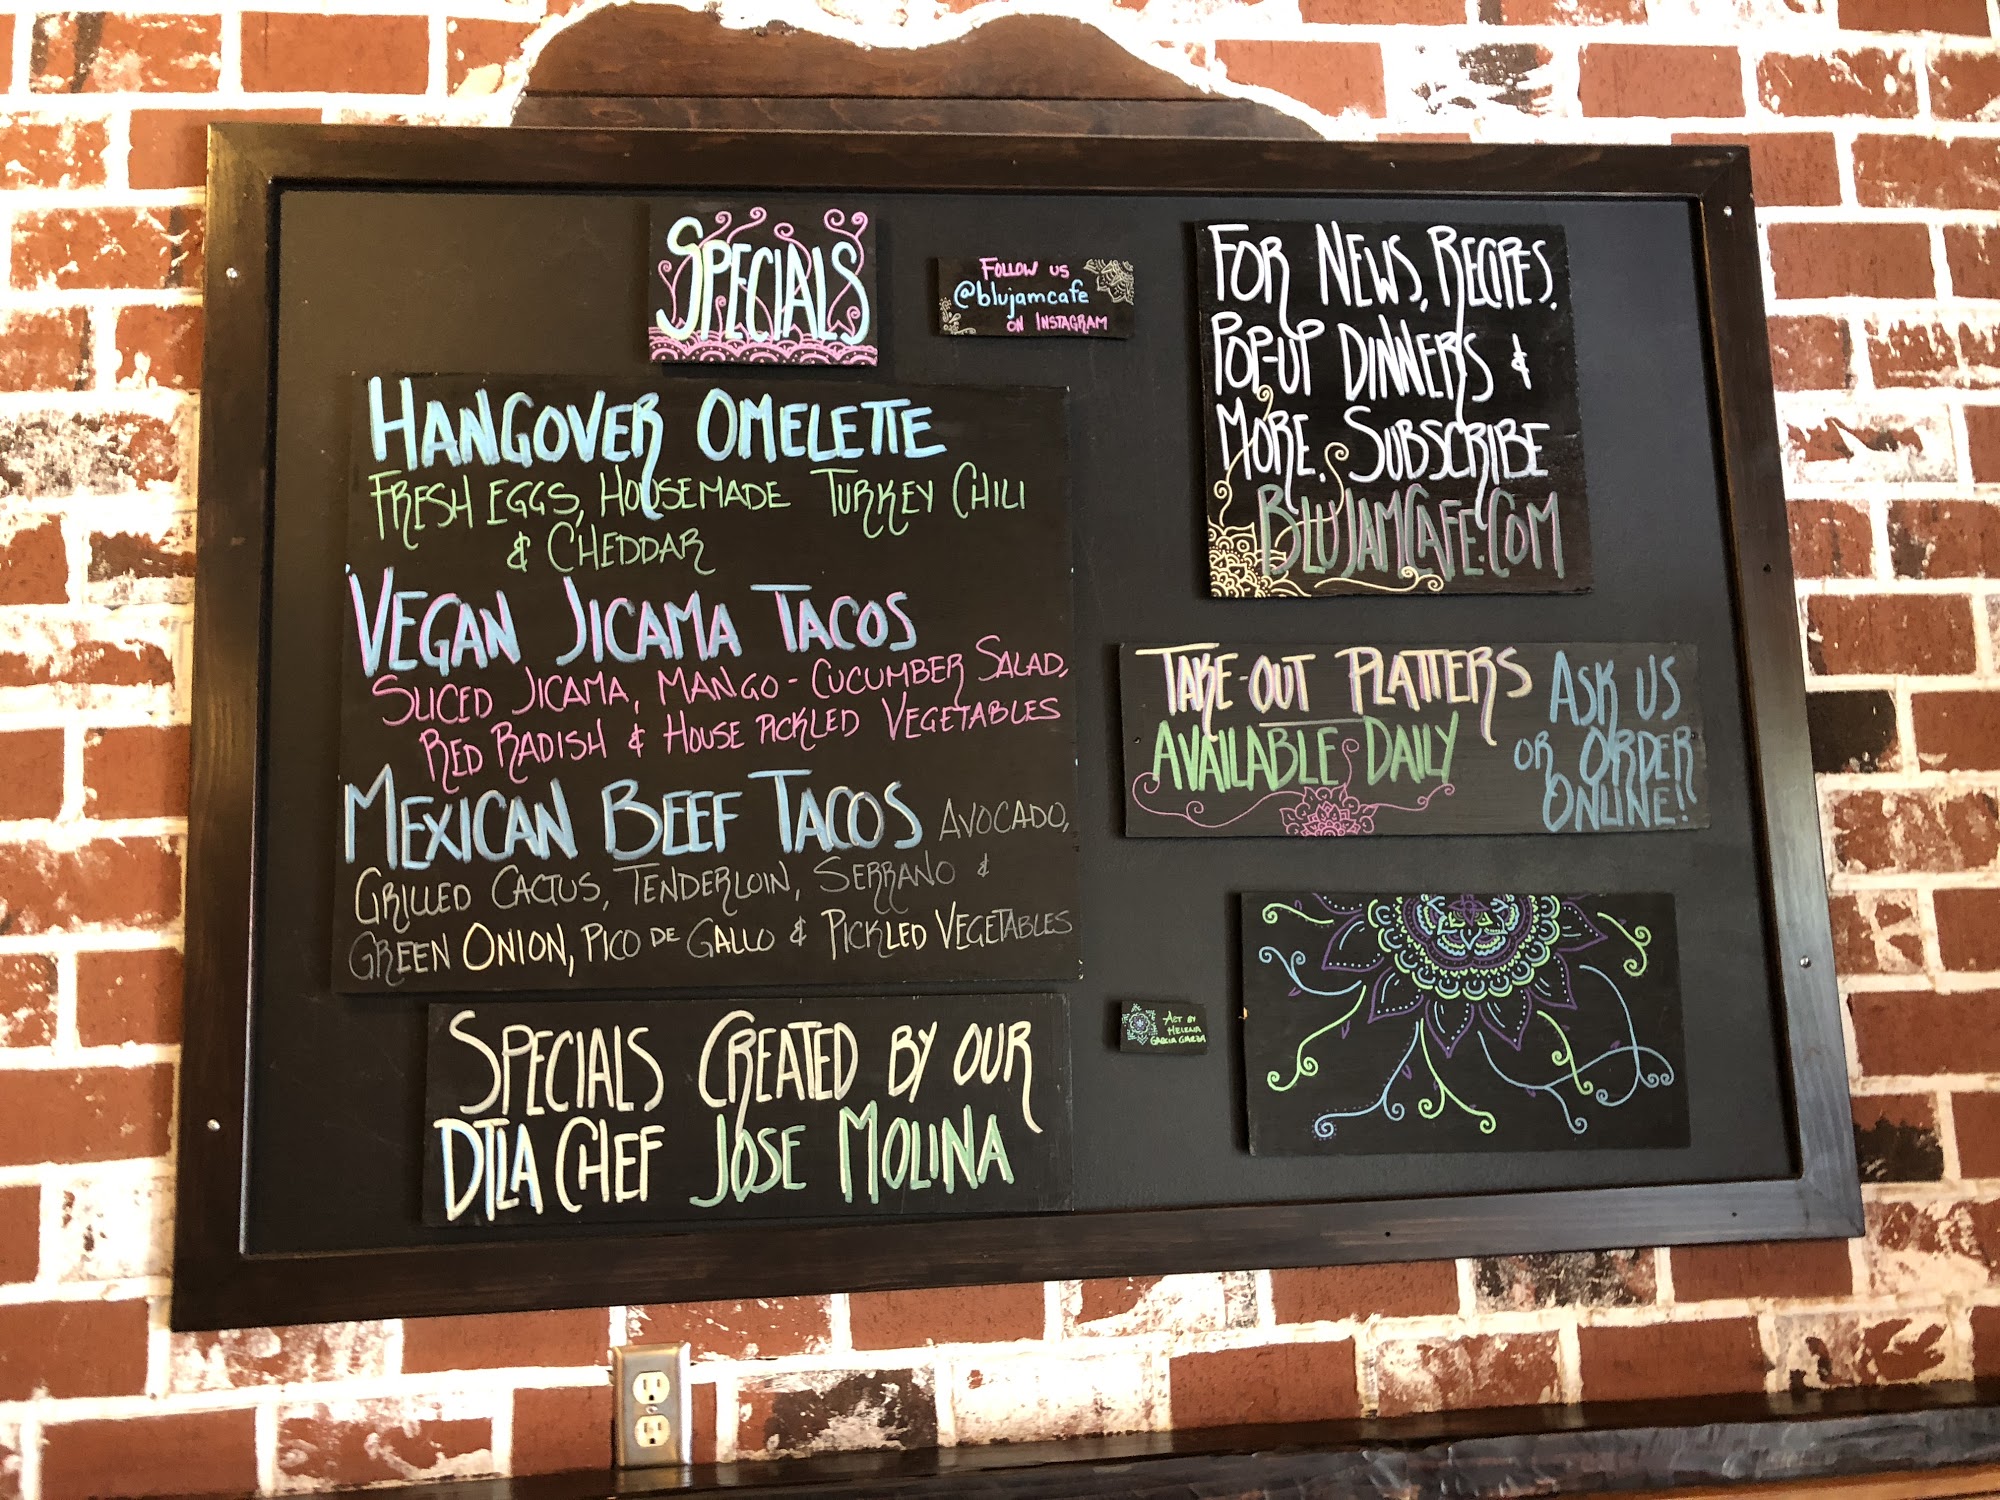 SPECIALS
FOLLOW US
@blujamcafe
ON INSTAGRAM
HANGOVER OMELETTE
FRESH EGGS, HOUSEMADE TURKEY CHILI
& CHEDDAR
VEGAN JICAMA TACOS
SLICED JICAMA, MANGO-CUCUMBER SALAD,
RED RADISH & HOUSE PICKLED VEGETABLES
MEXICAN BEEF TACOS AVOCADO,
GRILLED CACTUS, TENDERLOIN, SERRANO &
GREEN ONION, PICO DE GALLO & PICKLED VEGETABLES
SPECIALS CREATED BY OUR
DTLA CHEF JOSE MOLINA
FOR NEWS, RECIPES,
POP-UP DINNERS &
MORE, SUBSCRIBE
BLUJAMCAFE.COM
TAKE-OUT PLATTERS
AVAILABLE DAILY
ASK US
OR ORDER
ONLINE!
ART BY
GARCIA